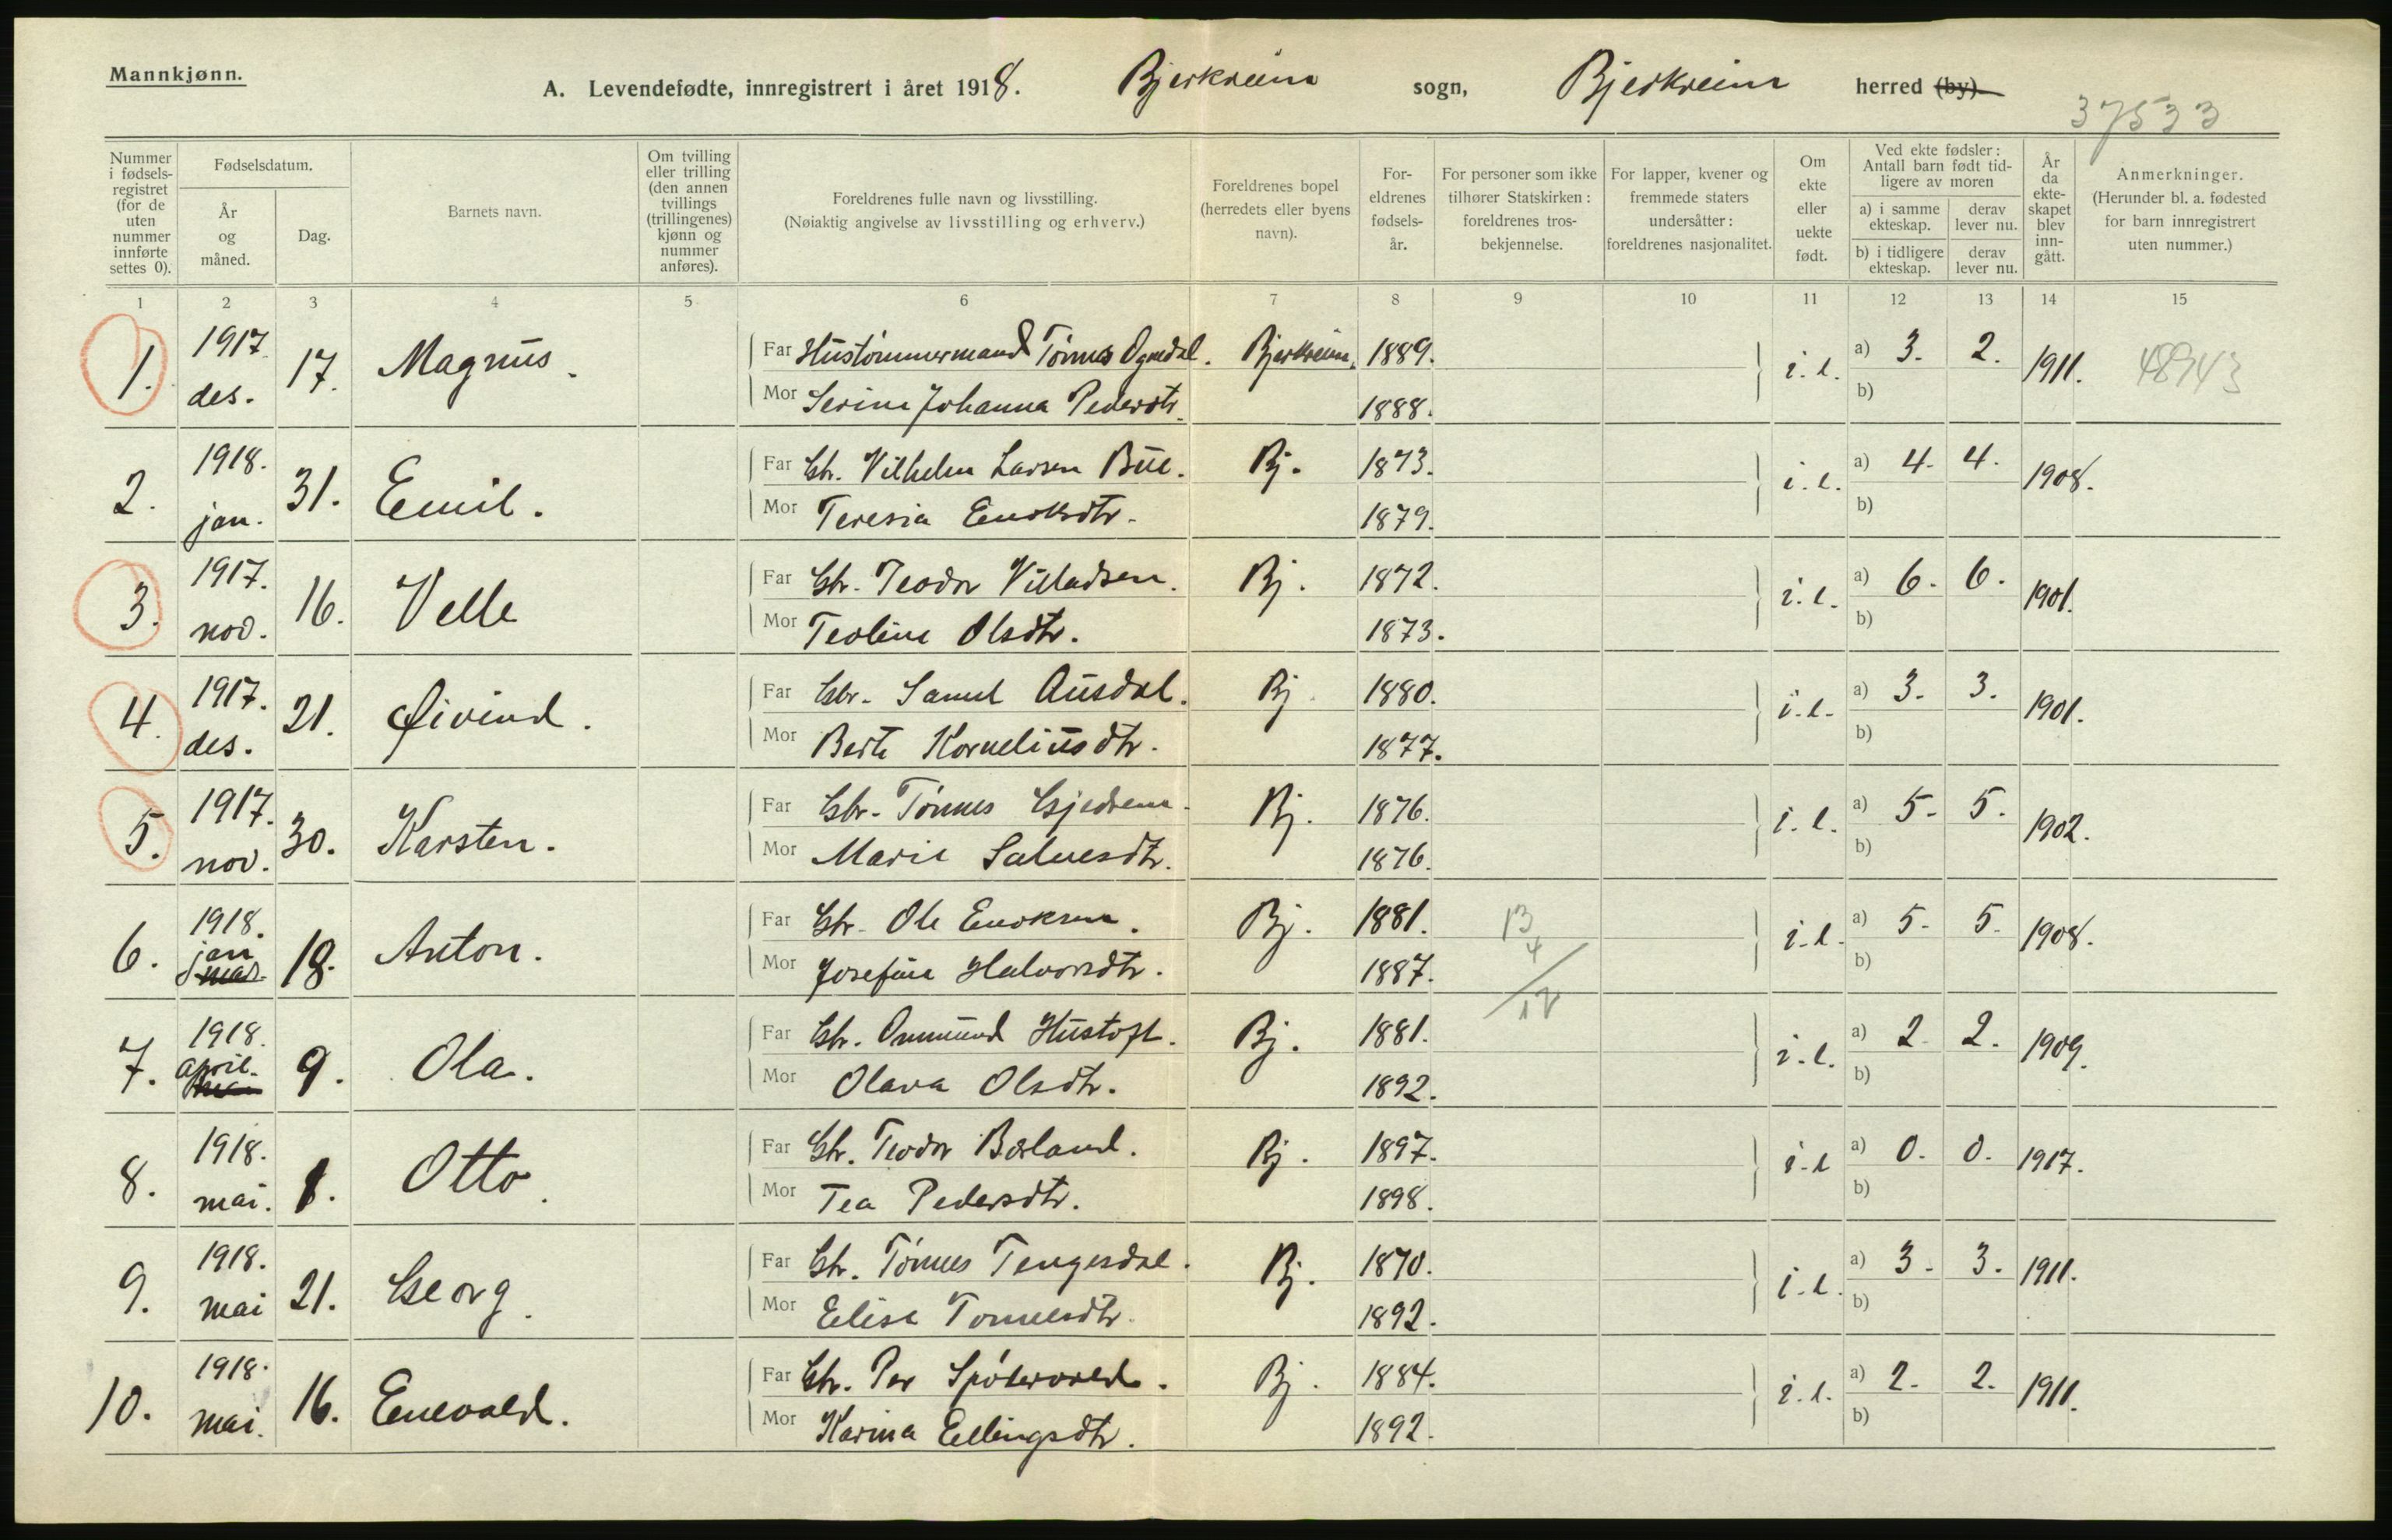 Mannkjønn.
A. Levendefødte, innregistrert i året 1918. Bjerkreim sogn, Bjerkreim herred (by).
37533
Nummer i fødselsregistret (for de uten nummer innførte settes 0).
Fødselsdatum.
År og måned.
Dag.
Barnets navn.
Om tvilling eller trilling (den annen tvillings (trillingenes) kjønn og nummer anføres).
Foreldrenes fulle navn og livsstilling.
(Nøiaktig angivelse av livsstilling og erhverv.)
Foreldrenes bopel (herredets eller byens navn).
Foreldrenes fødselsår.
For personer som ikke tilhører Statskirken: foreldrenes trosbekjennelse.
For lapper, kvener og fremmede staters undersåtter: foreldrenes nasjonalitet.
Om ekte eller uekte født.
Ved ekte fødsler: Antall barn født tidligere av moren
a) i samme ekteskap. derav lever nu.
b) i tidligere ekteskap. derav lever nu.
År da ekteskapet blev inngått.
Anmerkninger.
(Herunder bl. a. fødested for barn innregistrert uten nummer.)
1 2 3 4 5 6 7 8 9 10 11 12 13 14 15
1. 1917. des. 17. Magnus. Far Hustømmermand Tønnes Ognedal. Bjerkreim. 1889. i. e. a) 3. 2. 1911. 48943
Mor Serine Johanna Pedersdtr. 1888. b)
2. 1918. jan. 31. Emil. Far Gbr. Vilhelm Larsen Bue. Bj. 1873. i. e. a) 4. 4. 1908.
Mor Teresia Enoksdtr. 1879. b)
3. 1917. nov. 16. Velle Far Gbr. Teodor Villadsen. Bj. 1872. i. e. a) 6. 6. 1901.
Mor Teoline Olsdtr. 1873. b)
4. 1917. des. 21. Øivind. Far Gbr. Samuel Ausdal. Bj. 1880. i. e. a) 3. 3. 1901.
Mor Berte Korneliusdtr. 1877. b)
5. 1917. nov. 30. Karsten. Far Gbr. Tønnes Gjedrem. Bj. 1876. i. e. a) 5. 5. 1902.
Mor Marie Salvesdtr. 1876. b)
6. 1918. jan 18. Anton. Far Gbr. Ole Enoksen. Bj. 1881. 13 4/12 i. e. a) 5. 5. 1908.
Mor Josefine Halvorsdtr. 1887. b)
7. 1918. april. 9. Ola. Far Gbr. Ommund Hustoft. Bj. 1881. i. e. a) 2. 2. 1909.
Mor Olava Olsdtr. 1892. b)
8. 1918. mai. 1. Otto. Far Gbr. Teodor Børland. Bj. 1897. i. e a) 0. 0. 1917.
Mor Tea Pedersdtr. 1898. b)
9. 1918. mai 21. Georg. Far Gbr. Tønnes Tengesdal. Bj. 1870. i. e. a) 3. 3. 1911.
Mor Elise Tønnesdtr. 1892. b)
10. 1918. mai. 16. Enevald. Far Gbr. Per Spødervold. Bj. 1884. i. e. a) 2. 2. 1911.
Mor Karina Ellingsdtr. 1892. b)